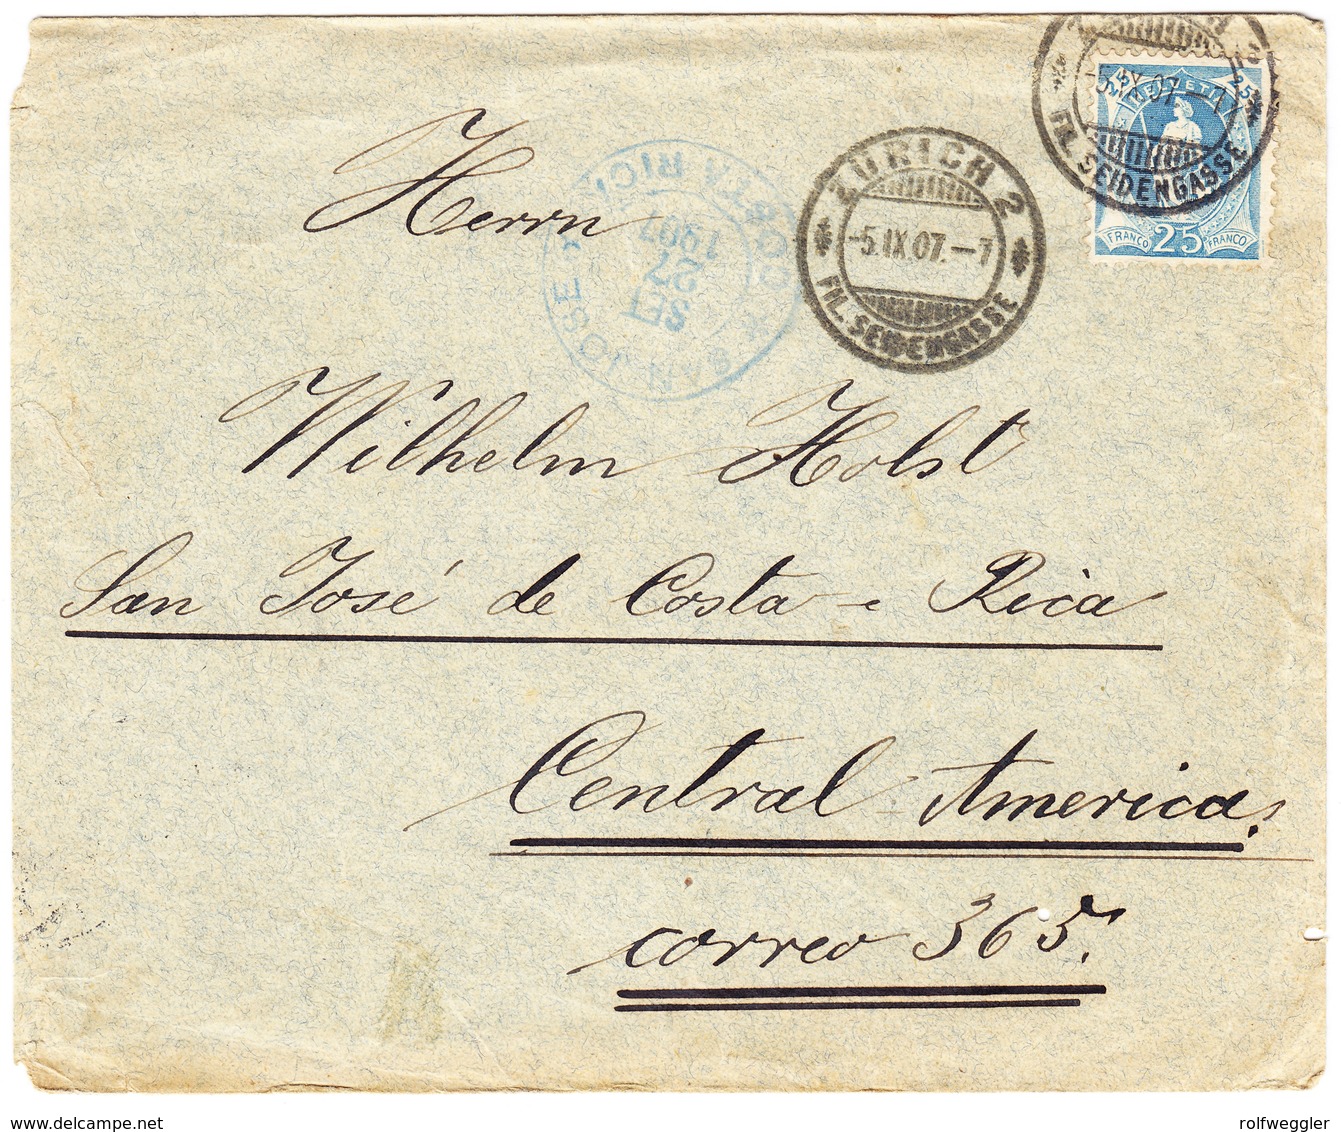 ZÜRICH 2
-5.IX.07.-7
FIL. SEIDENGASSE
HELVETIA
25
FRANCO 25 FRANCO
-5.IX.07.-7
FIL. SEIDENGASSE
SAN JOSE
COSTA RICA
SET
27
1907
Herrn
Wilhelm Holst
San José de Costa-Rica
Central-America.
correo 365.
www.delcampe.net
rolfweggler